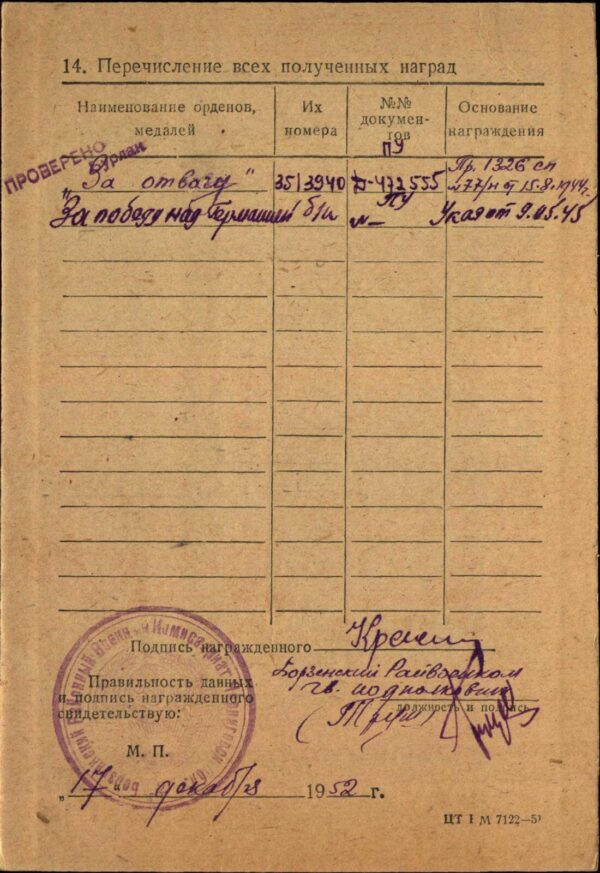 14. Перечисление всех полученных наград
Наименование орденов, медалей
Их номера
№№ документов
Основание награждения
ПРОВЕРЕНО
„За отвагу“ 3513940 ПУ Д-472555 Пр. 1326 сп №77/н от 15.8.1944г.
За победу над Германией б/н ПУ №— Указ от 9.05.45
Подпись награжденного
Правильность данных
и подпись награжденного
свидетельствую:
Борзенский Райвоенком
гв. подполковник
должность и подпись
М. П.
„17“ декабря 1952 г.
ЦТ 1 М 7122—51